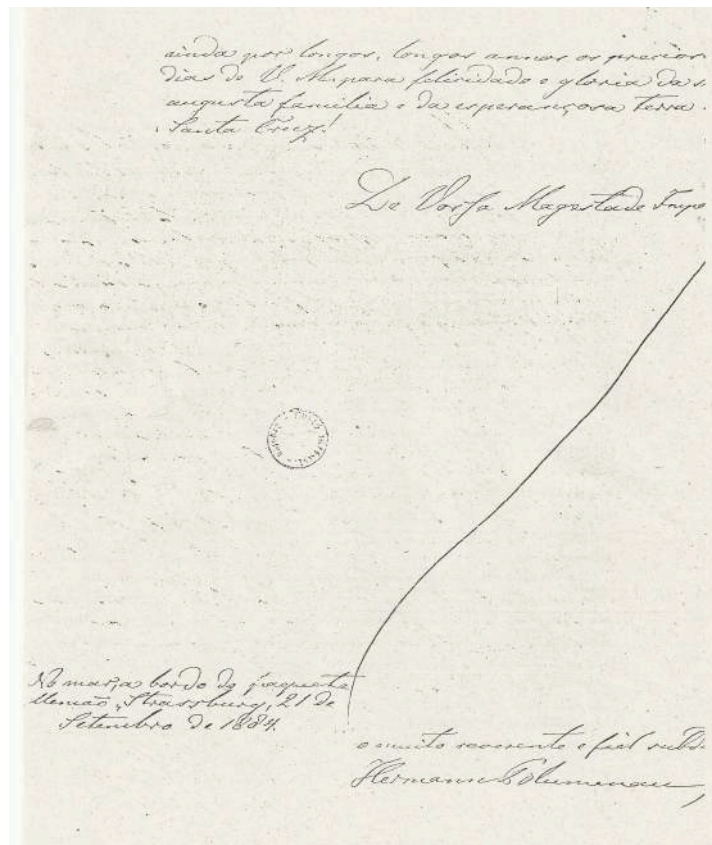 ainda por longos, longos annos os precios
dias de V. M. para felicidade e gloria da s
augusta familia e da esperançosa terra
Santa Cruz!
De Vossa Magestade Impe
No mar, a bordo do paquete
allemão „Strassburg, 21 de
Setembro de 1884.
o muito reverente e fiel subd
Hermann Blumenau